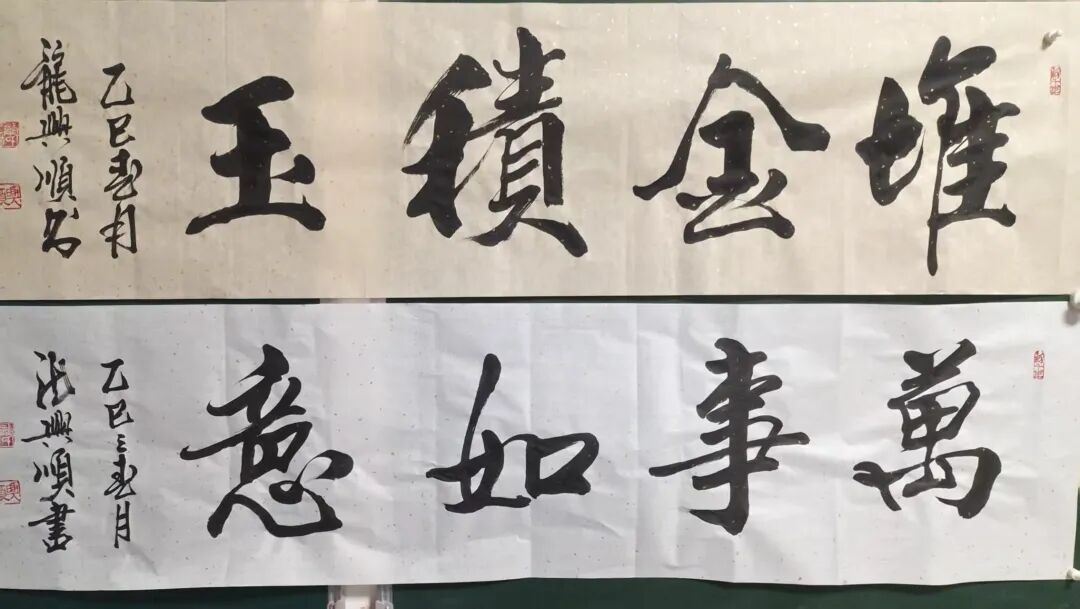 堆金積玉
乙巳春月
興順書
萬事如意
乙巳三春月
張興順書